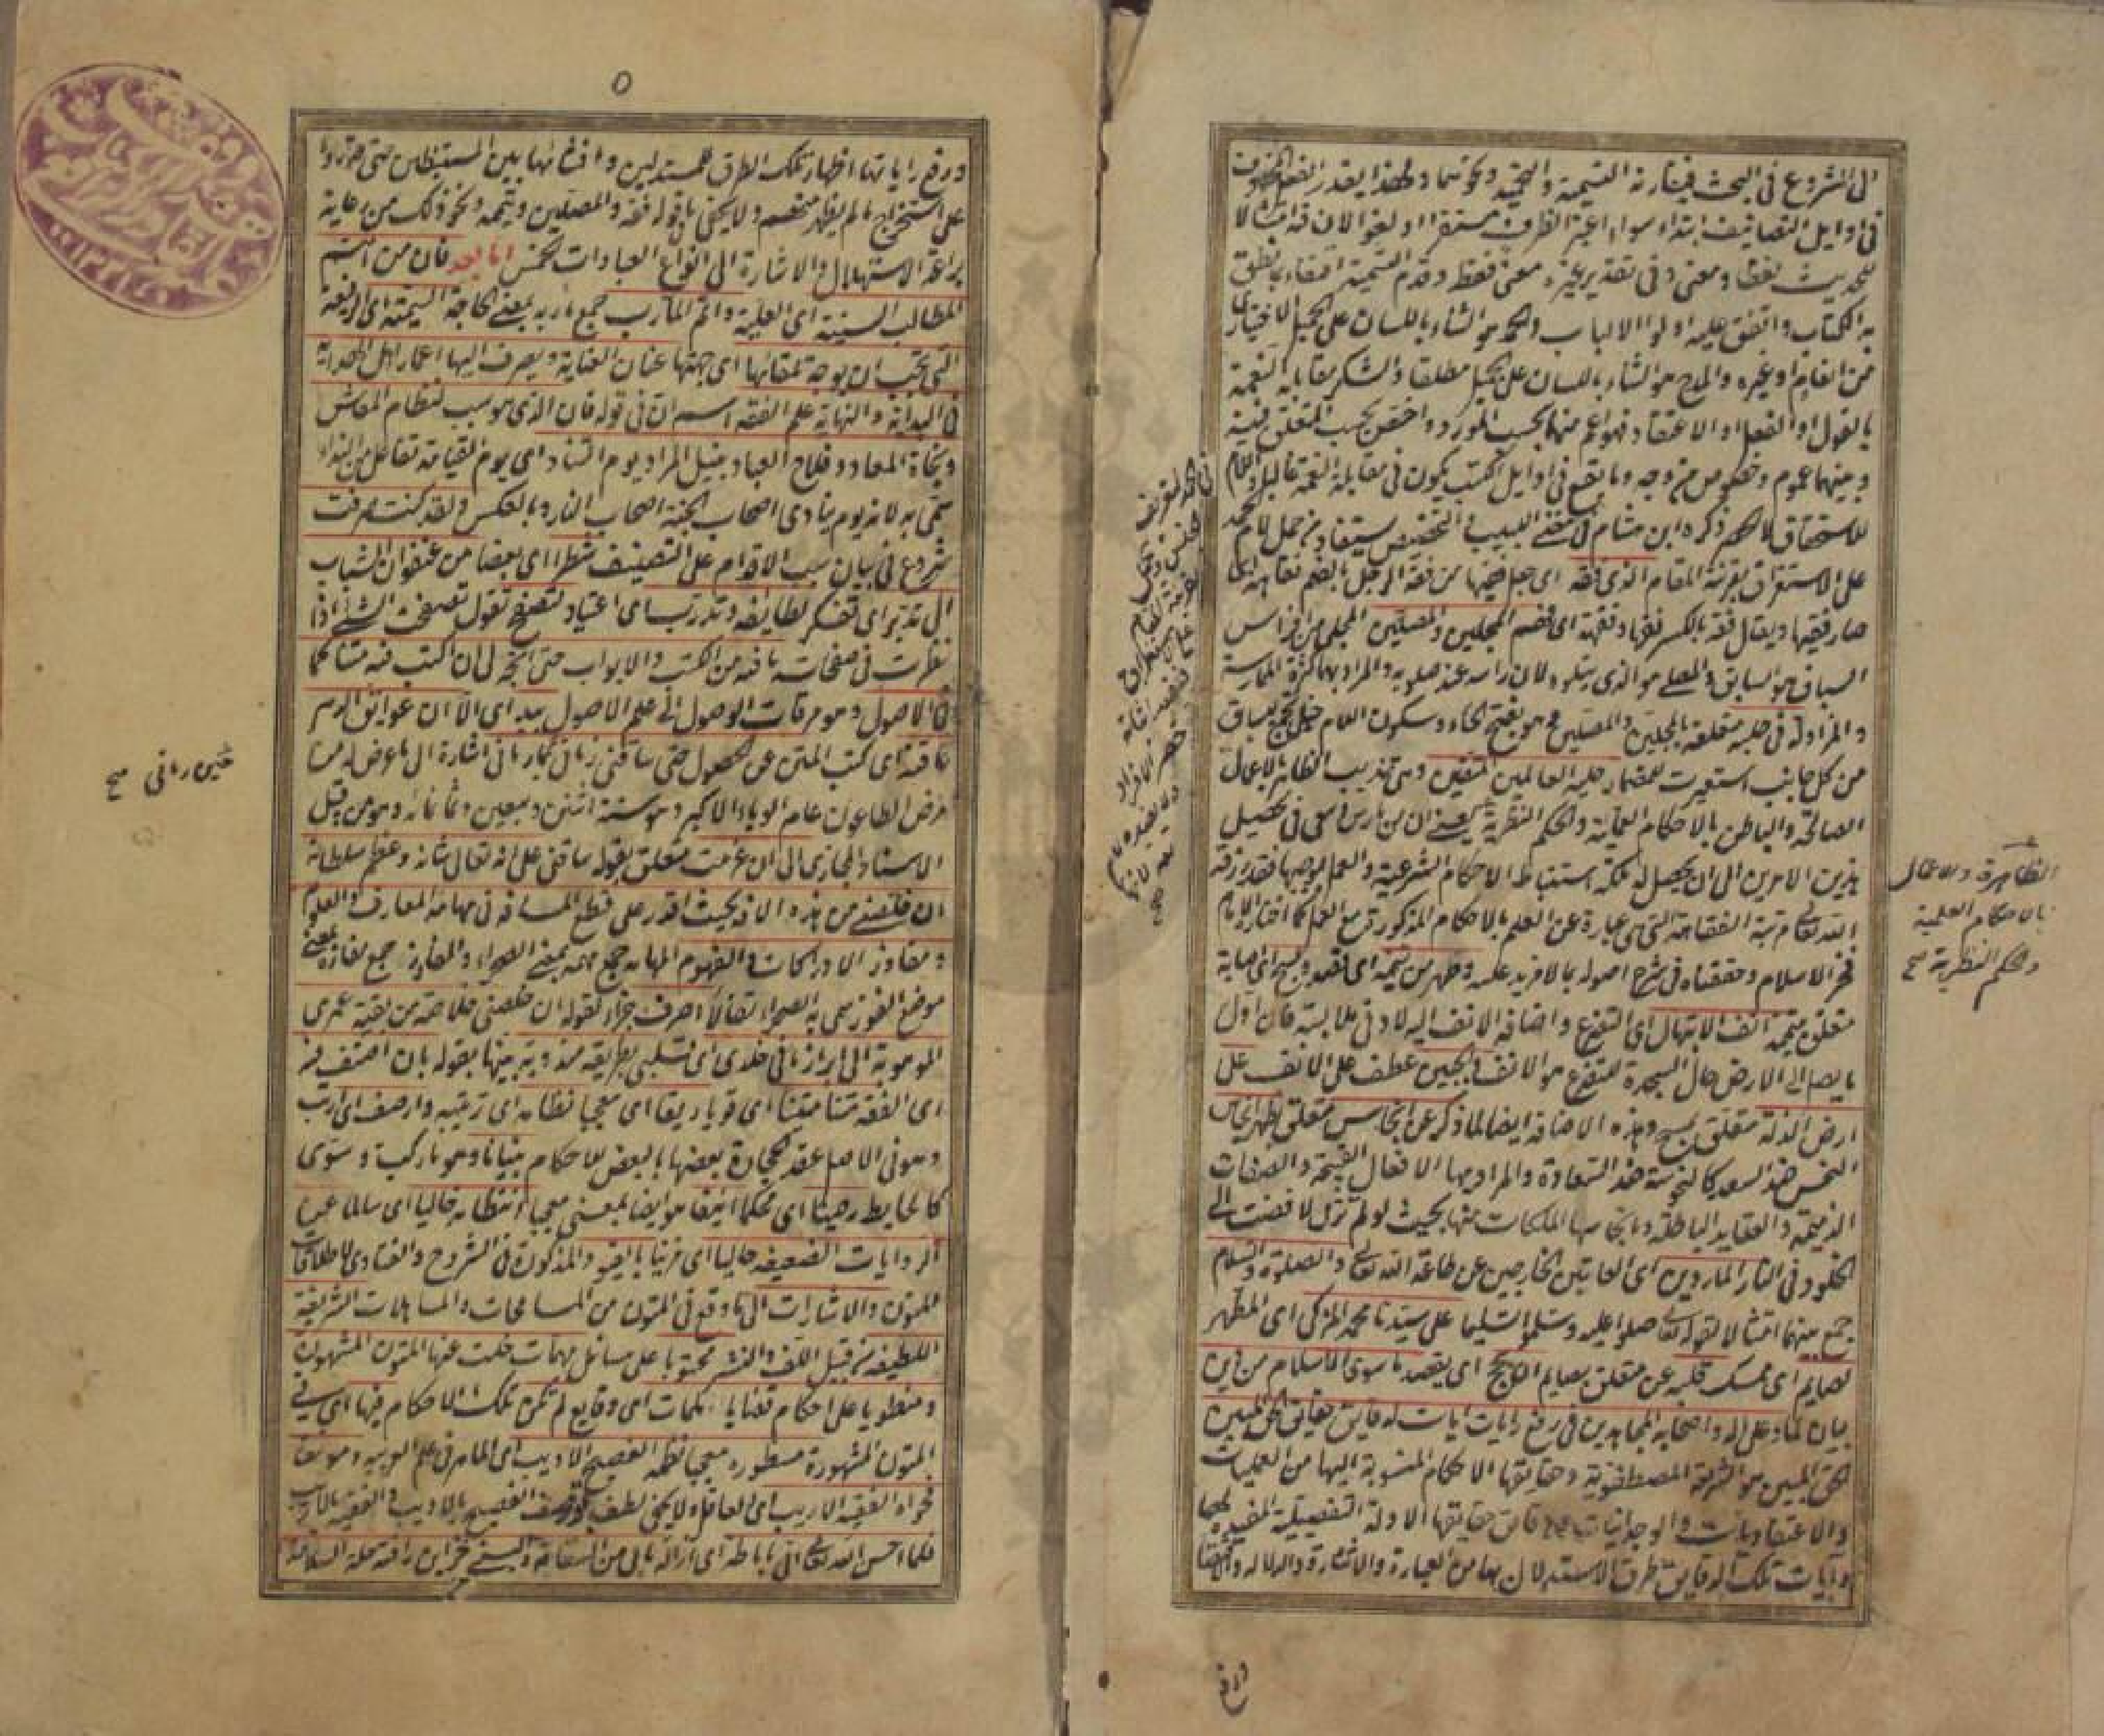 الى الشروع فى البحث فيقارنه التسمية والتحميد ونحوهما ولهذا يقدر الفعل المحذوف
فى اوايل التصانيف ابتداء سواء اعتبر الظرف مستقرا او لغوا لان فيه امتثالا
للحديث لفظا ومعنى وفى تقدير غيره معنى فقط وقدم التسمية اقتفاء بما نطق
به الكتاب واتفق عليه اولوا الالباب والحمد هو الثناء باللسان على الجميل الاختيارى
من انعام او غيره والمدح هو الثناء باللسان على الجميل مطلقا والشكر مقابلة النعمة
بالقول او الفعل او الاعتقاد فهو اعم منهما بحسب المورد واخص بحسب المتعلق فبينه
وبينهما عموم وخصوص من وجه وما يقع فى اوايل الكتب يكون فى مقابلة النعمة غالبا واللام
للاستحقاق كما ذكره ابن هشام فى مغنى اللبيب والتخصيص يستفاد من حمل لام الحمد
على الاستغراق بقرينة المقام الذى فقه اى جعل فقيها من فقه الرجل بالضم فقاهة اى
صار فقيها ويقال فقه بالكسر فقها وتفقهه اى فهم المجلين والمصلين المجلى من افراس
السباق هو السابق والمصلى هو الذى يتلوه لان راسه عند صلويه والمراد بهما كثرة الممارسة
والمزاولة فى حلبة متعلقة بالمجلين والمصلين وهو بفتح الحاء وسكون اللام خيل تجمع للسباق
من كل جانب استعيرت للمضمار حلية العالمين المتقين وهى تهذيب الظاهر بالاعمال
الصالحة والباطن بالاحكام العملية والحكم النظرية يعنى ان من مارس وسعى فى تحصيل
هذين الامرين الى ان يحصل له ملكة استنباط الاحكام الشرعية والعمل بموجبها فقد رزقه
الله تعالى مرتبة الفقاهة التى هى عبارة عن العلم بالاحكام المذكورة مع العمل كما اختاره الامام
فخر الاسلام وحققناه فى شرح اصوله بما لا مزيد عليه وطهر من تيممه اى قصد وبمسح اى اصابة
متعلق بتيممه انف الابتهال اى التضرع واضافة الانف اليه لادنى ملابسة فان اول
ما يصل الى الارض حال السجدة للتضرع هو الانف والجبين عطف على الانف على
ارض الذلة متعلق بمسح وهذه الاضافة ايضا لما ذكر عن انجاس متعلق بطهر انجاس
النحس ضد السعد كالنحوسة ضد السعادة والمراد بها الافعال القبيحة والصفات
الذميمة والعقايد الباطلة وانجاسها الملكات منها بحيث لو لم تزل لافضت الى
الخلود فى النار الماردين اى العاتين الخارجين عن طاعة الله تعالى والصلوة والسلام
جمع بينهما امتثالا لقوله تعالى صلوا عليه وسلموا تسليما على سيدنا محمد المزكى اى المطهر
لصايم اى ممسك قلبه عن متعلق بصايم اى يقصد ما سوى الاسلام من دين
بيان لما وعلى اله واصحابه المجاهدين فى رفع رايات ايات دقايق حقايق الحق المبين
الحق المبين هو الشريعة المصطفوية وحقايقها الاحكام المنسوبة اليها من العمليات
والاعتقاديات والوجدانيات ودقايق حقايقها الادلة التفصيلية المفيدة لها
وايات تلك الدقايق طرق الاستدلال بها من العبارة والاشارة والدلالة والاقتضاء
الظاهرة والاعمال
بالاحكام العلمية
والحكم النظرية صح
ورفع
٥
ورفع راياتها اظهار تلك الطرق للمستدلين وافشائها بين المستنبطين حتى قدروا
على استخراج ما لم يظهر منهم ولا يخفى ما فى قوله فقه والمصلين وتيممه ونحو ذلك من رعاية
براعة الاستهلال والاشارة الى انواع العبادات الخمس اما بعد فان من اتم
المطالب السنية اى العلية واتم المآرب جمع اربه بمعنى الحاجة السمية اى الرفيعة
التى يجب ان يوجه تلقائها اى جهتها عنان العناية ويصرف اليها اعمار اهل الهداية
فى البداية والنهاية علم الفقه اسم ان فى قوله فان الذى هو سبب لنظام المعاش
ونجاة المعاد وفلاح العباد بنيل المراد يوم التناد اى يوم القيامة تفاعل من النداء
سمى به لانه يوم ينادى اصحاب الجنة اصحاب النار وبالعكس ولقد كنت صرفت
شروع فى بيان سبب الاقدام على التصنيف شطرا اى بعضا من عنفوان الشباب
الى تدبر اى تفكر لطايفه وتدرب اى اعتياد لتصفح تقول تصفحت الشئ اذا
نظرت فى صفحاته ما فيه من الكتب والابواب حتى اتجه لى ان اكتب فيه متنا كما
فى الاصول وهو مرقات الوصول الى علم الاصول بيد اى الا ان عوائق الدهر
عاقته اى كتب المتن عن الحصول حتى ساقنى زمانى كما رمانى اشارة الى ما عرض له من
مرض الطاعون عام الوباء الاكبر وهو سنة اثنين وسبعين وثمانمائة وهو من قبيل
الاسناد المجازى الى ان عزمت متعلق بقوله ساقنى على انه تعالى شانه وعظم سلطانه
ان خلصنى من هذه الافة بحيث اقدر على قطع المسافة فى مهامه المعارف والعلوم
ومفاوز الادراكات والفهوم المهامه جمع مهمه بمعنى الصحراء والمفاوز جمع مفازة بمعنى
موضع الفوز سمى به الصحراء تفالا اصرف جزاء لقوله ان خلصنى خلاصة من بقية عمرى
الموهوبة الى ابراز ما فى خلدى اى قلبى بطريقة مندوبة بينها بقوله بان اصنف فيه
اى الفقه متنا متينا اى قويا رايقا اى معجبا نظامه اى ترتيبه وارصف اى ارتب
وهو فى الاصل عقد الحجارة بعضها بالبعض للاحكام بنيانا وهو ما ركب وسوى
كالحايط رصينا اى محكما انيقا هو ايضا بمعنى معجبا انتظامه خاليا اى سالما عن
الروايات الضعيفة حاليا اى مزينا بالقيود المذكورة فى الشروح والفتاوى لاطلاقات
المتون والاشارات الى ما وقع فى المتون من المسامحات والمساهلات الشريفة
اللطيفة من قبيل اللف والنشر محتويا على مسائل مهمات خلت عنها المتون المشهورة
ومنطويا على احكام قضايا ملمات اى وقايع لم تكن تلك الاحكام فيها اى فى
المتون المشهورة مسطورة معجبا نظمه الفصيح الاديب اى الماهر فى علم العربية ومونقا
فحواه الفقيه الاريب اى العاقل ولا يخفى لطف توصيف الفصيح بالاديب والفقيه بالاريب
فلما احسن الله تعالى الى باماطة اى ازالة ما بى من السقامة والبسنى من خزاين رافته حلة السلامة
حتى رمانى صح